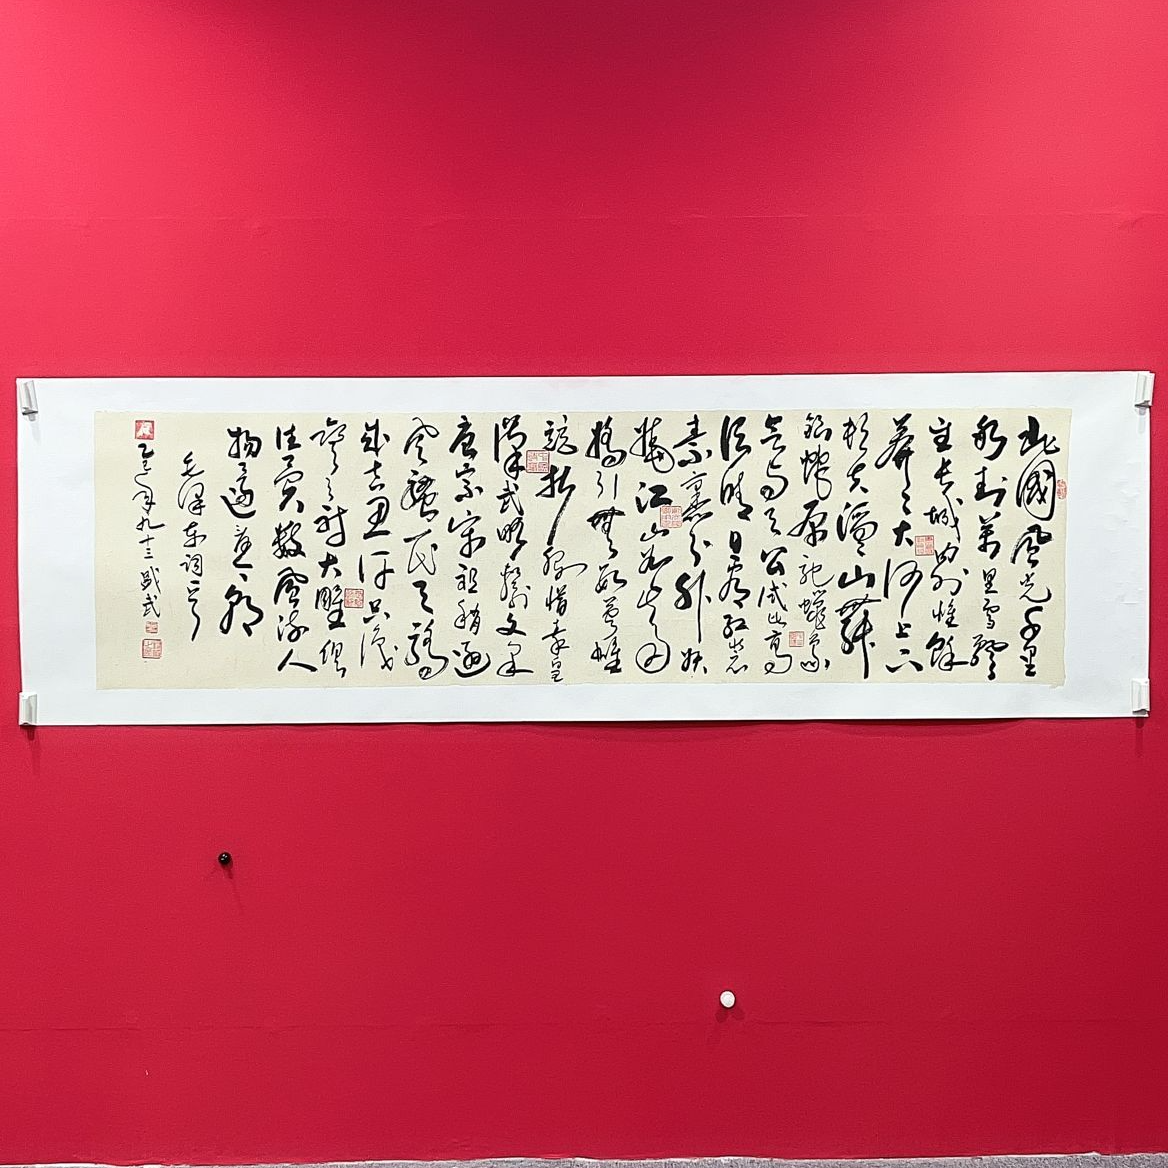 北國風光千里
冰封萬里雪飄
望長城内外惟餘
莽莽大河上下
頓失滔滔山舞
銀蛇原馳蠟象
欲與天公試比高
須晴日看紅裝
素裹分外妖
嬈江山如此多
嬌引無數英雄
競折腰惜秦皇
漢武略輸文采
唐宗宋祖稍遜
風騷一代天驕
成吉思汗只識
彎弓射大雕俱
往矣數風流人
物還看今朝
毛澤東詞一首
乙巳年九十三